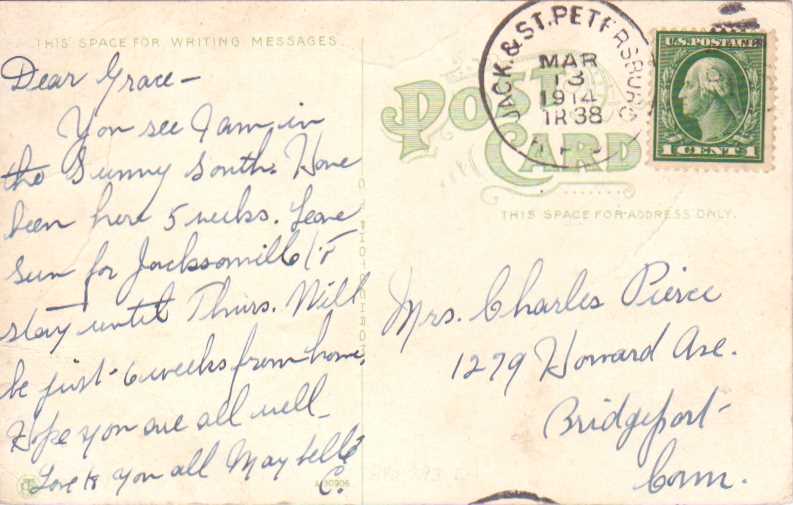 THIS SPACE FOR WRITING MESSAGES
Dear Grace –
You see I am in
the Sunny South. Have
been here 5 weeks. Leave
Sun for Jacksonville
stay until Thurs. Will
be just 6 weeks from home.
Hope you are all well –
Love to you all Maybelle
C.
A-30906
POST CARD
JACK. & ST. PETERSBURG
MAR
13
1914
TR 38
U.S. POSTAGE
1 CENT 1
THIS SPACE FOR ADDRESS ONLY.
Mrs. Charles Pierce
1279 Howard Ave.
Bridgeport
Conn.